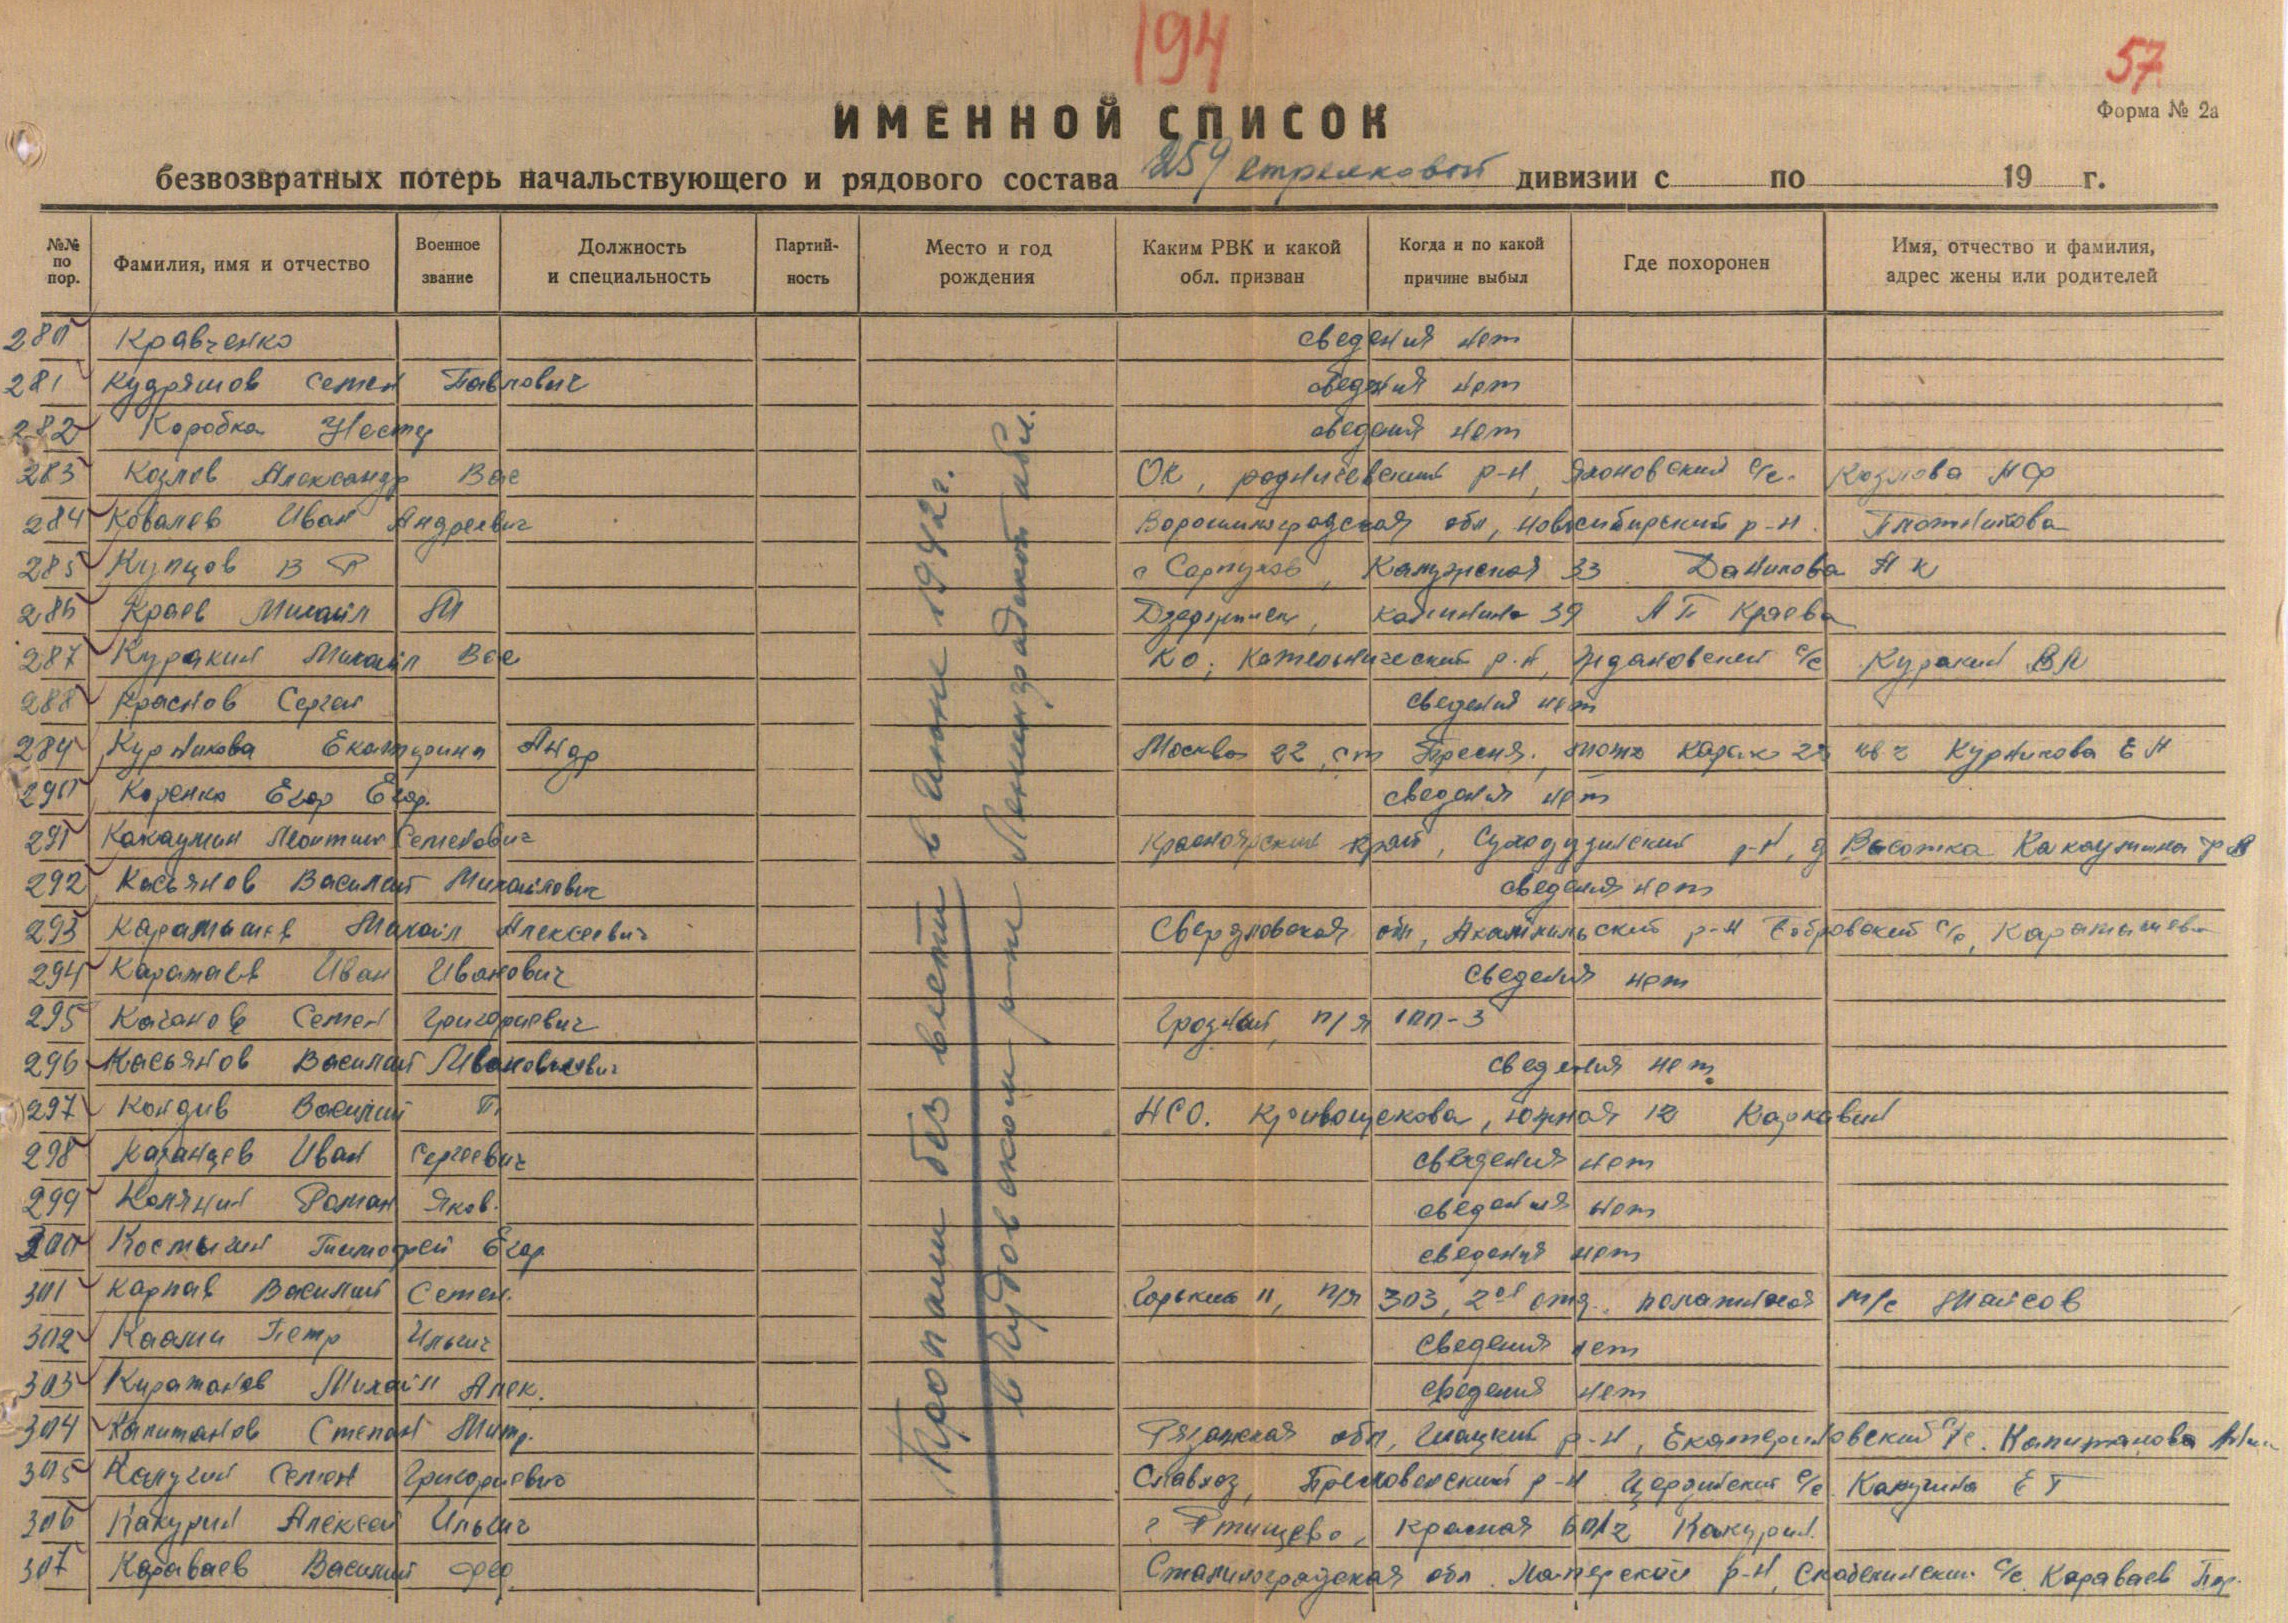 194
57
Форма № 2а
ИМЕННОЙ СПИСОК
безвозвратных потерь начальствующего и рядового состава 259 стрелковой дивизии с по 19 г.
№№ по пор.
Фамилия, имя и отчество
Военное звание
Должность и специальность
Партийность
Место и год рождения
Каким РВК и какой обл. призван
Когда и по какой причине выбыл
Где похоронен
Имя, отчество и фамилия, адрес жены или родителей
280 Кравченко сведения нет
281 Кудряшов Семен Павлович сведения нет
282 Коробка Нестер сведения нет
283 Козлов Александр Вас ОК, родничевский р-н, с/с. Козлова НФ
284 Ковалев Иван Андреевич Ворошилоградская обл, новосибирский р-н. Плотникова
285 Купцов В Г г Серпухов, Калужская 33 Данилова А К
286 Краев Михаил М Дзержинск, калинина 39 А П Краева
287 Куракин Михаил Вас КО, Котельнический р-н, Ждановский с/с Куракин ВЛ
288 Краснов Сергей сведения нет
289 Курникова Екатерина Андр Москва 22, ст Пресня, кв 2 Курникова Е Н
290 Коренко Егор Егор. сведения нет
291 Какаулин Леонтий Семенович Красноярский край, р-н, д Высотка
292 Касьянов Василий Михайлович сведения нет
293 Каратышев Михаил Алексеевич Свердловская обл, р-н Бобровский с/с, Каратышева
294 Каратаев Иван Иванович сведения нет
295 Качанов Семен Григориевич Грозный, п/я 100-3
296 Касьянов Василий сведения нет
297 Кондив Василий П НСО. Кривощекова, южная 12 Каркавин
298 Казанцев Иван Сергеевич сведения нет
299 Колянин Роман Яков. сведения нет
300 Костыгин Тимофей Егор. сведения нет
301 Карпав Василий Семен. Горький 11, п/я 303, 2ой отд. м/с
302 Петр Ильич сведения нет
303 Куратанов Михаил Алек. сведения нет
304 Капитанов Степан Митр. Рязанская обл, р-н, Екатериновский с/с. Капитанова
305 Калугин Семен Григориевич Славхоз, р-н с/с Калугина Е Г
306 Какурин Алексей Ильич г Ртищево, красная Какурин.
307 Караваев Василий Фео Сталиноградская обл. р-н, с/с Караваев
Пропали без вести в июне 1942 г.
в Чудовском р-не Ленинградской обл.